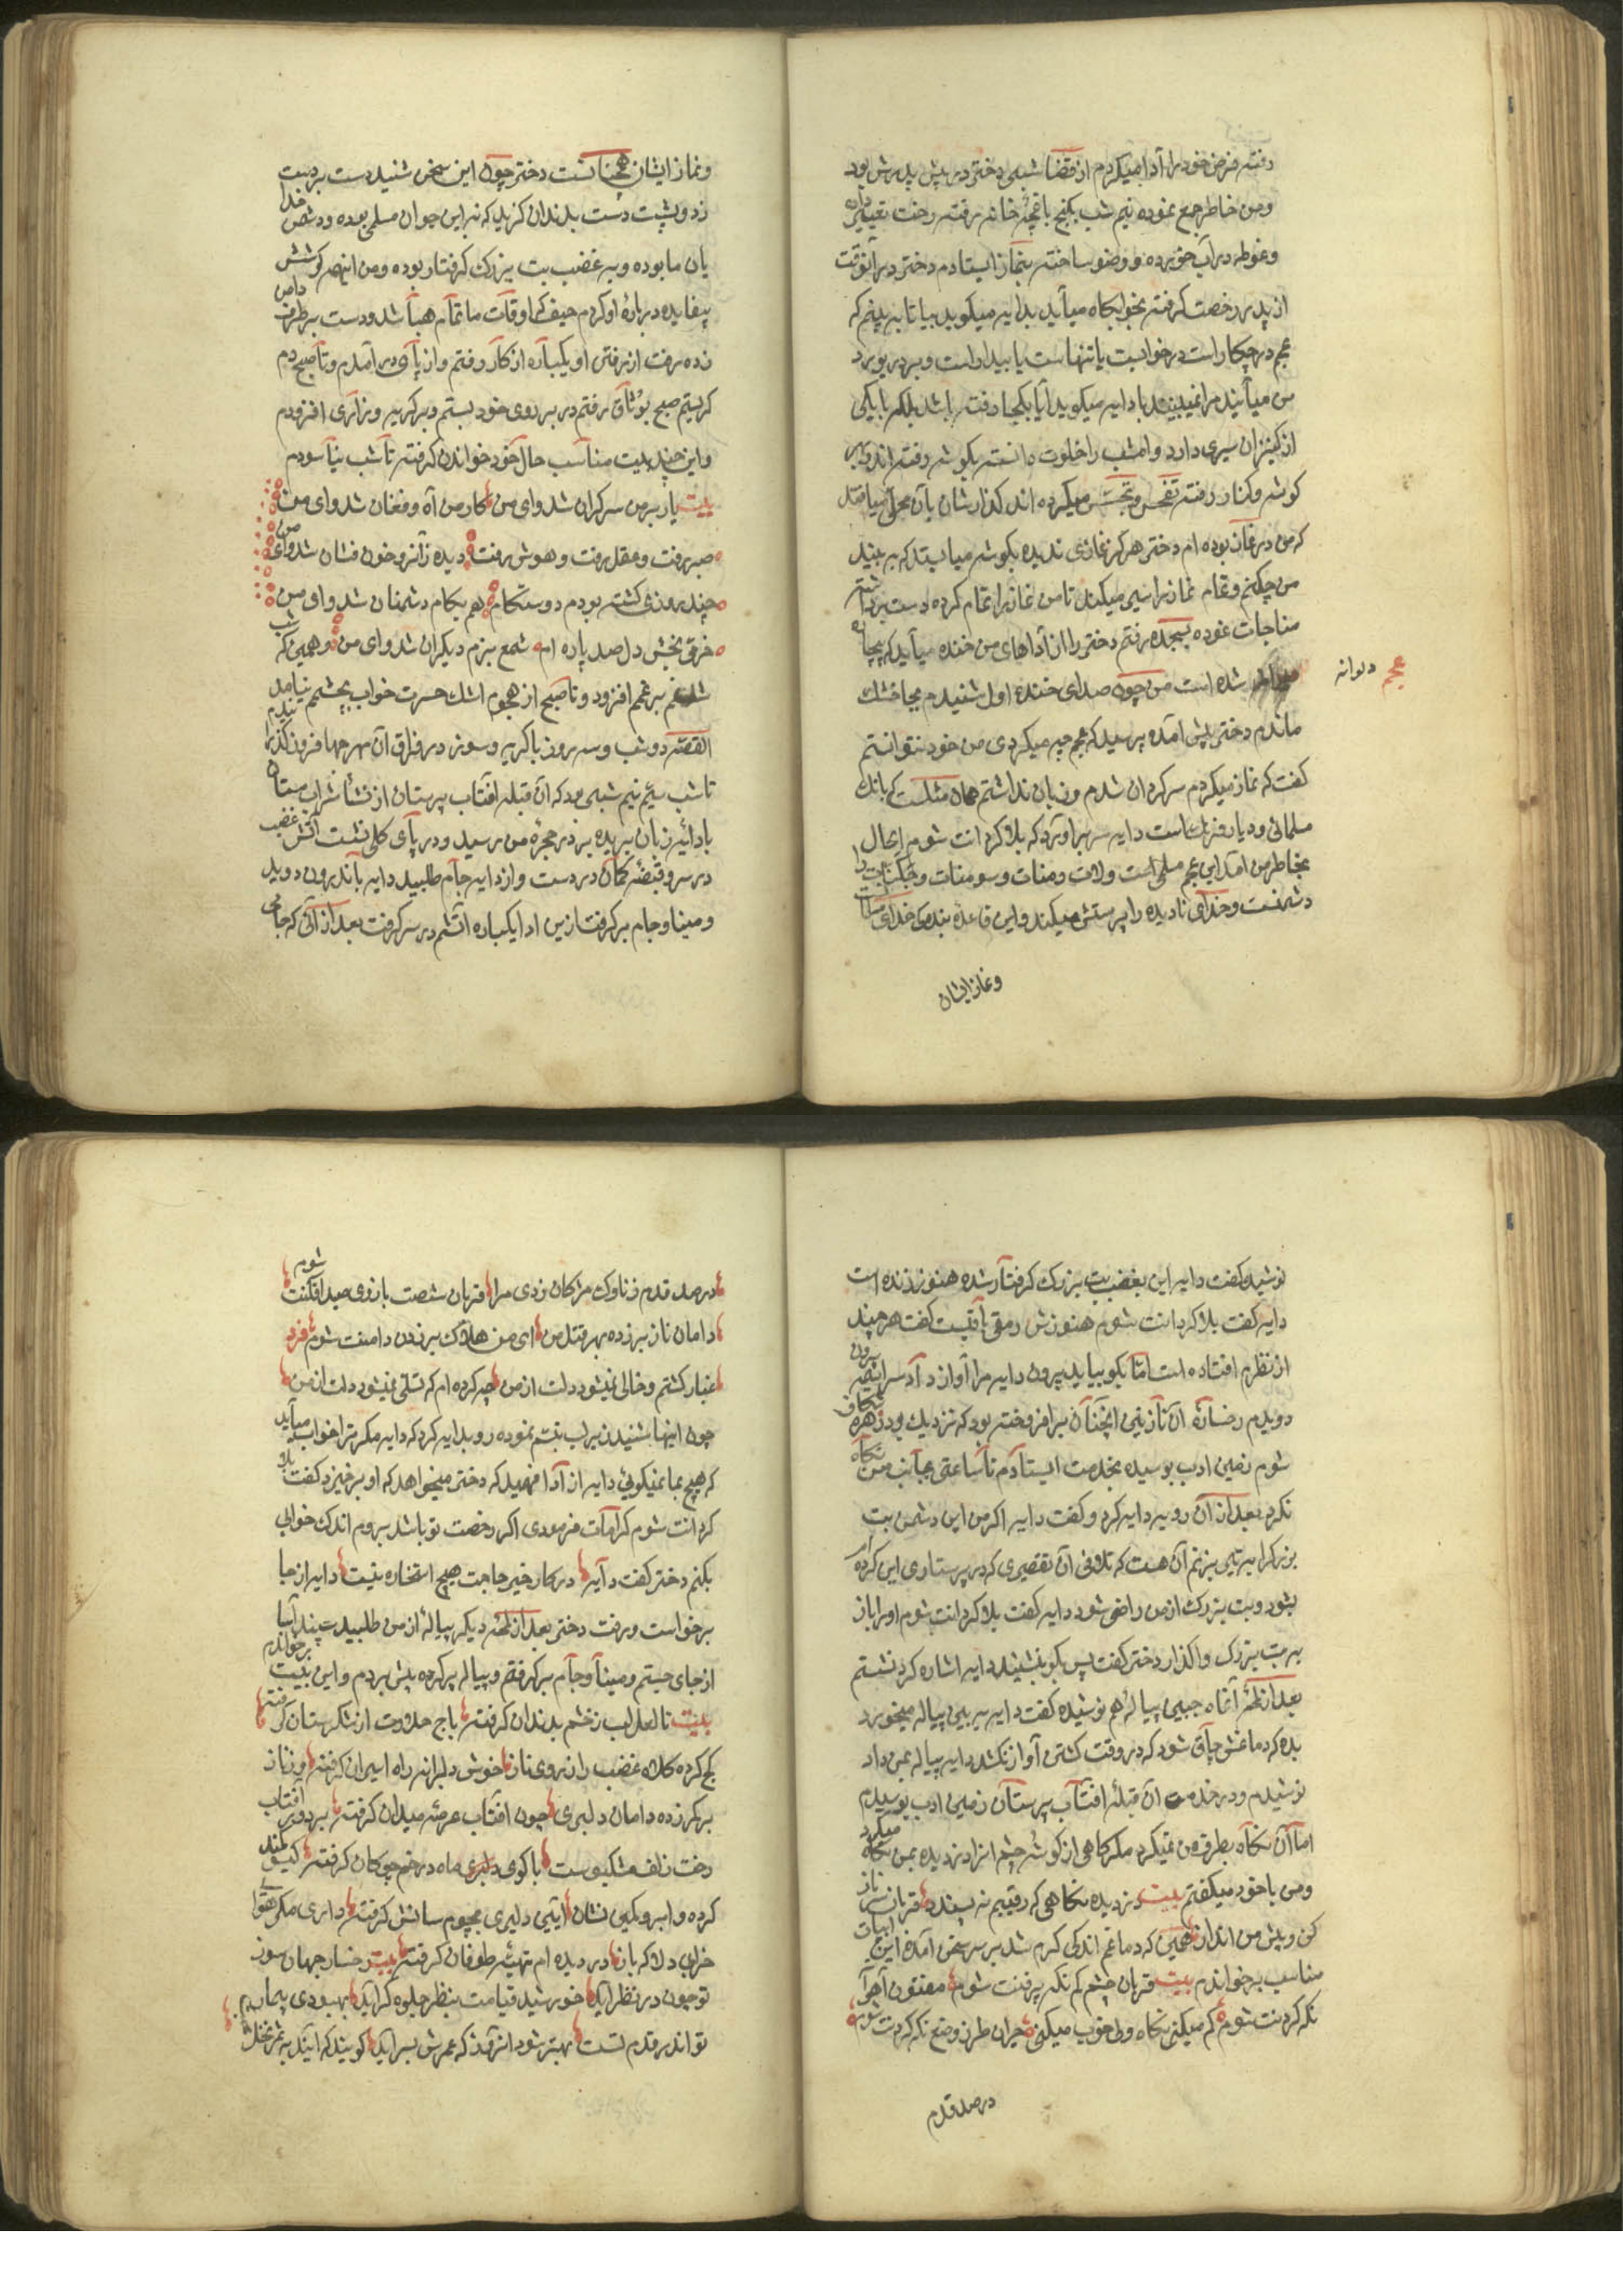 رفته فرض خود را ادا میکردم از قضا شبی دختر در پیش پدرش بود
و من خاطر جمع نموده نیم شب بکنج باغچهٔ خانه رفته رخت تغییر داده
و غوطه در آب خورده و وضو ساخته بنماز ایستادم دختر در آنوقت
از پدر رخصت گرفته بخوابگاه میآید بدایه میگوید بیا تا به بینم که
عجم در چکار است در خوابست یا تنهاست یا بیدار است و بر در یورد
من میآیند مرا نمیبینند با دایه میگوید آیا بکجا رفته باشد بلکه با یکی
از کنیزان سری دارد و امشب را خلوت دانسته بگوشه رفته اند در هر
گوشه و کنار رفته تفحص و تجسس میکرده اند گذارشان بآن محل میافتد
که من در نماز بوده ام دختر هرگز نمازی ندیده بگوشه میایستد که به بیند
من چکنم و تمام نماز را سیر میکند تا من نماز را تمام کرده دست برداشته
مناجات نموده بسجده رفتم دختر را از اداهای من خنده میآید که بیچاره
عجم دیوانه
شده است من چون صدای خنده اول شنیدم بجا خشک
ماندم دختر پیش آمده پرسید که عجم چه میکردی من خود نتوانستم
گفت که نماز میکردم سرگردان شدم و زبان نداشتم همان مثلست که بانک
مسلمانی و دیار فرنک است دایه سر بر آورد که بلا گردانت شوم الحال
بخاطر من آمد این عجم مسلم است و لات و منات و سومنات و جکنات را
دشمنست و خدای نادیده را پرستش میکند و این قاعدهٔ بندگی خدای
و نماز ایشان
و نماز ایشان همچنانست دختر چون این سخن شنید دست بر دست
زد و پشت دست بدندان گزید که نه این جوان مسلم بوده و دشمن خدا
یان ما بوده و به غضب بت بزرک گرفتار بوده و من اینهمه کوشش
بیفایده در بارهٔ او کردم حیف که اوقات ما تمام هبا شد و دست بر طرف دامن
زده رفت از رفتن او یکباره از کار رفتم و از پای در آمدم و تا صبح دم
گریستم صبح بوثاق رفتم در بر روی خود بستم و بر گریه و زاری افزودم
و این چند بیت مناسب حال خود خواندن گرفته تا شب نیاسودم
بیت یار بر من سرگران شد وای من کار من آه و فغان شد وای من
صبر رفت و عقل رفت و هوش رفت دیده زانرو خون فشان شد وای من
چند روزی گشته بودم دوستکام هم بکام دشمنان شد وای من
خرقی بخش دل صد پاره ام شمع بزم دیگران شد وای من و همین که شب
شد غم بر غم افزود و تا صبح از هجوم اشک حسرت خواب بچشم نیامد
القصه دو شب و سه روز با گریه و سوز در فراق آن مهر جها فروز گذرا نیدم
تا شب سیم نیم شبی بود که آن قبلهٔ آفتاب پرستان از نشأ شراب مستان
با دایهٔ زبان بریده بر در حجرهٔ من رسید و در پای گلی نشست آتش غضب
در سر و قبضهٔ کمان در دست و از دایه جام طلبید دایه باندرون دوید
و مینا و جام بر گرفت از این ادا یکباره آتشم در سر گرفت بعد از آنی که جامی
نوشید گفت دایه این بغضب بت بزرک گرفتار شده هنوز زنده است
دایه گفت بلا گردانت شوم هنوزش رمقی باقیست گفت هر چند
از نظرم افتاده است اما بگو بیاید بیرون دایه مرا آواز داد سراسیمه بیرون
دویدم رخسارهٔ آن نازنین آنچنان بر افروخته بود که نزدیک بود زهره شکاف
شوم زمین ادب بوسیده بخدمت ایستادم تا ساعتی بجانب من نگاه
نکرد بعد از آن رو به دایه کرد و گفت دایه اگر من این دشمن بت
بزرک را به تیر بزنم آن هست که تلافی آن تقصیری که در پرستاری این کرده ام
بشود و بت بزرک از من راضی شود دایه گفت بلا گردانت شوم او را باز
به بت بزرک واگذار دختر گفت پس بگو بنشیند دایه اشاره کرد نشستم
بعد از لمحهٔ آن ماه جبین پیالهٔ هم نوشیده گفت دایه به بین پیاله میخورد
بده که دماغش چاق شود که در وقت کشتن آواز نکشد دایه پیاله بمن داد
نوشیدم و در خدمت آن قبلهٔ آفتاب پرستان زمین ادب بوسیدم
اما آن نگاه بطرف من نمیکرد مگر گاهی از گوشهٔ چشم از دزدیده بمن نگاه میکرد
و من با خود میگفتم بیت دزدیده نگاهی که رقیبم نه پسندد قربان سر ناز
کن و پیش من انداز همین که دماغم اندکی گرم شد بر سر سخن آمده این ابیات
مناسب بر خواندم بیت قربان چشم کم نگه پر فنت شوم مفتون آهوا
نگه کردنت شوم کم میکنی نگاه ولی خوب میکنی حیران طرز وضع نگه کردنت شوم
در صد قدم
در صد قدم ز ناوک مژگان زدی مرا قربان شصت بازوی صید افکنت شوم
دامان ناز بر زده بهر قتل من ای من هلاک بر زدن دامنت شوم فرد
غبار گشتم و خالی نمیشود دلت از من چه کرده ام که تسلی نمیشود دلت از من
چون اینها شنید زیر لب تبسم نموده رو بدایه کرد که دایه مگر ترا خواب میآید
که هیچ بما نمیگوئی دایه از ادا فهمید که دختر میخواهد که او بر خیزد گفت بلا
گردانت شوم کرامات فرمودی اگر رخصت تو باشد بروم اندک خوابی
بکنم دختر گفت دایه در کار خیر حاجت هیچ استخاره نیست دایه از جا
برخواست و رفت دختر بعد از لمحه دیگر پیالهٔ از من طلبید سپند آسا
از جای جستم و مینا و جام بر گرفتم و پیاله پر کرده پیش بردم و این بیت بر خواندم
بیت تا لعل لب زخشم بدندان گرفته باج حلاوت از شکرستان گرفته
کج کرده کلاه غضب را ز روی ناز خوش دلبرانه راه اسیران گرفته و ز ناز
بر کمر زده دامان دلبری چون آفتاب عرصه میدان گرفته بر دور آفتاب
رخت زلف مشکبوست با گوی دلبری ماه در خم چوگان گرفته گیسو کمند
کرده و ابرو کمین نشان آیین دلبری بچپوم سانش گرفته داری مگر هوا
خرابی دلا که باز در دیده ام تهیهٔ طوفان گرفته بیت رخسار جهان سوز
تو چون در نظر آید خورشید قیامت بنظر جلوه گر آید بهبودی بیمار
تو اندر قدم تست بهتر شود آنروز که عمرش بسر آید گویند که آیند به ثمر نخل